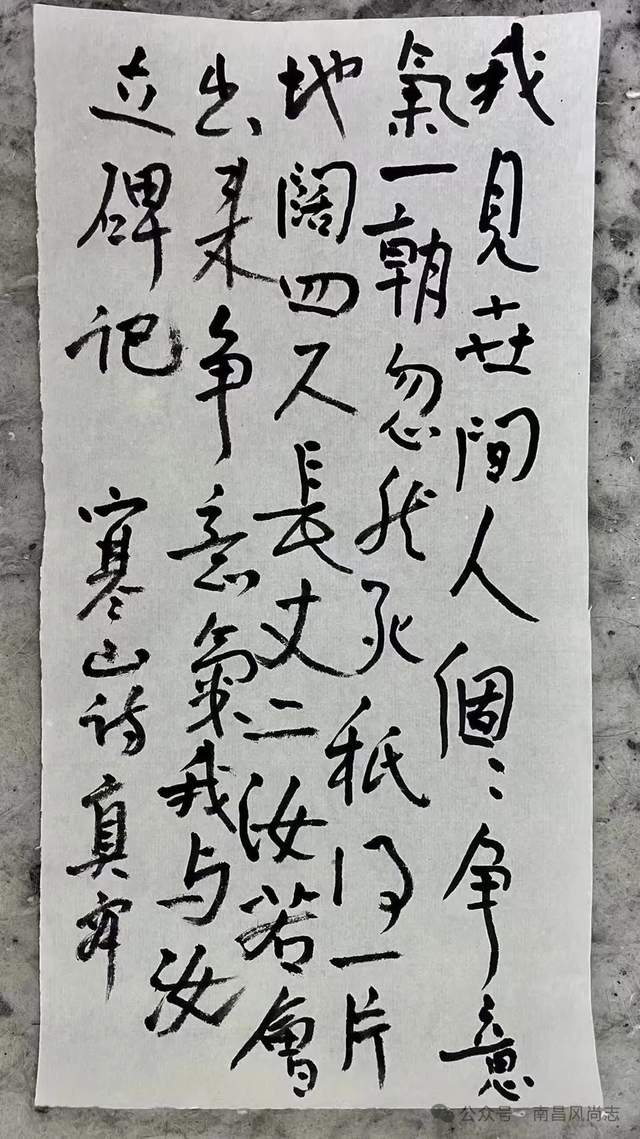 我見世間人個々争意
氣一朝忽然死秖得一片
地闊四尺長丈二汝若會
出来争意氣我与汝
立碑记 寒山诗真
公众号·南昌风尚志